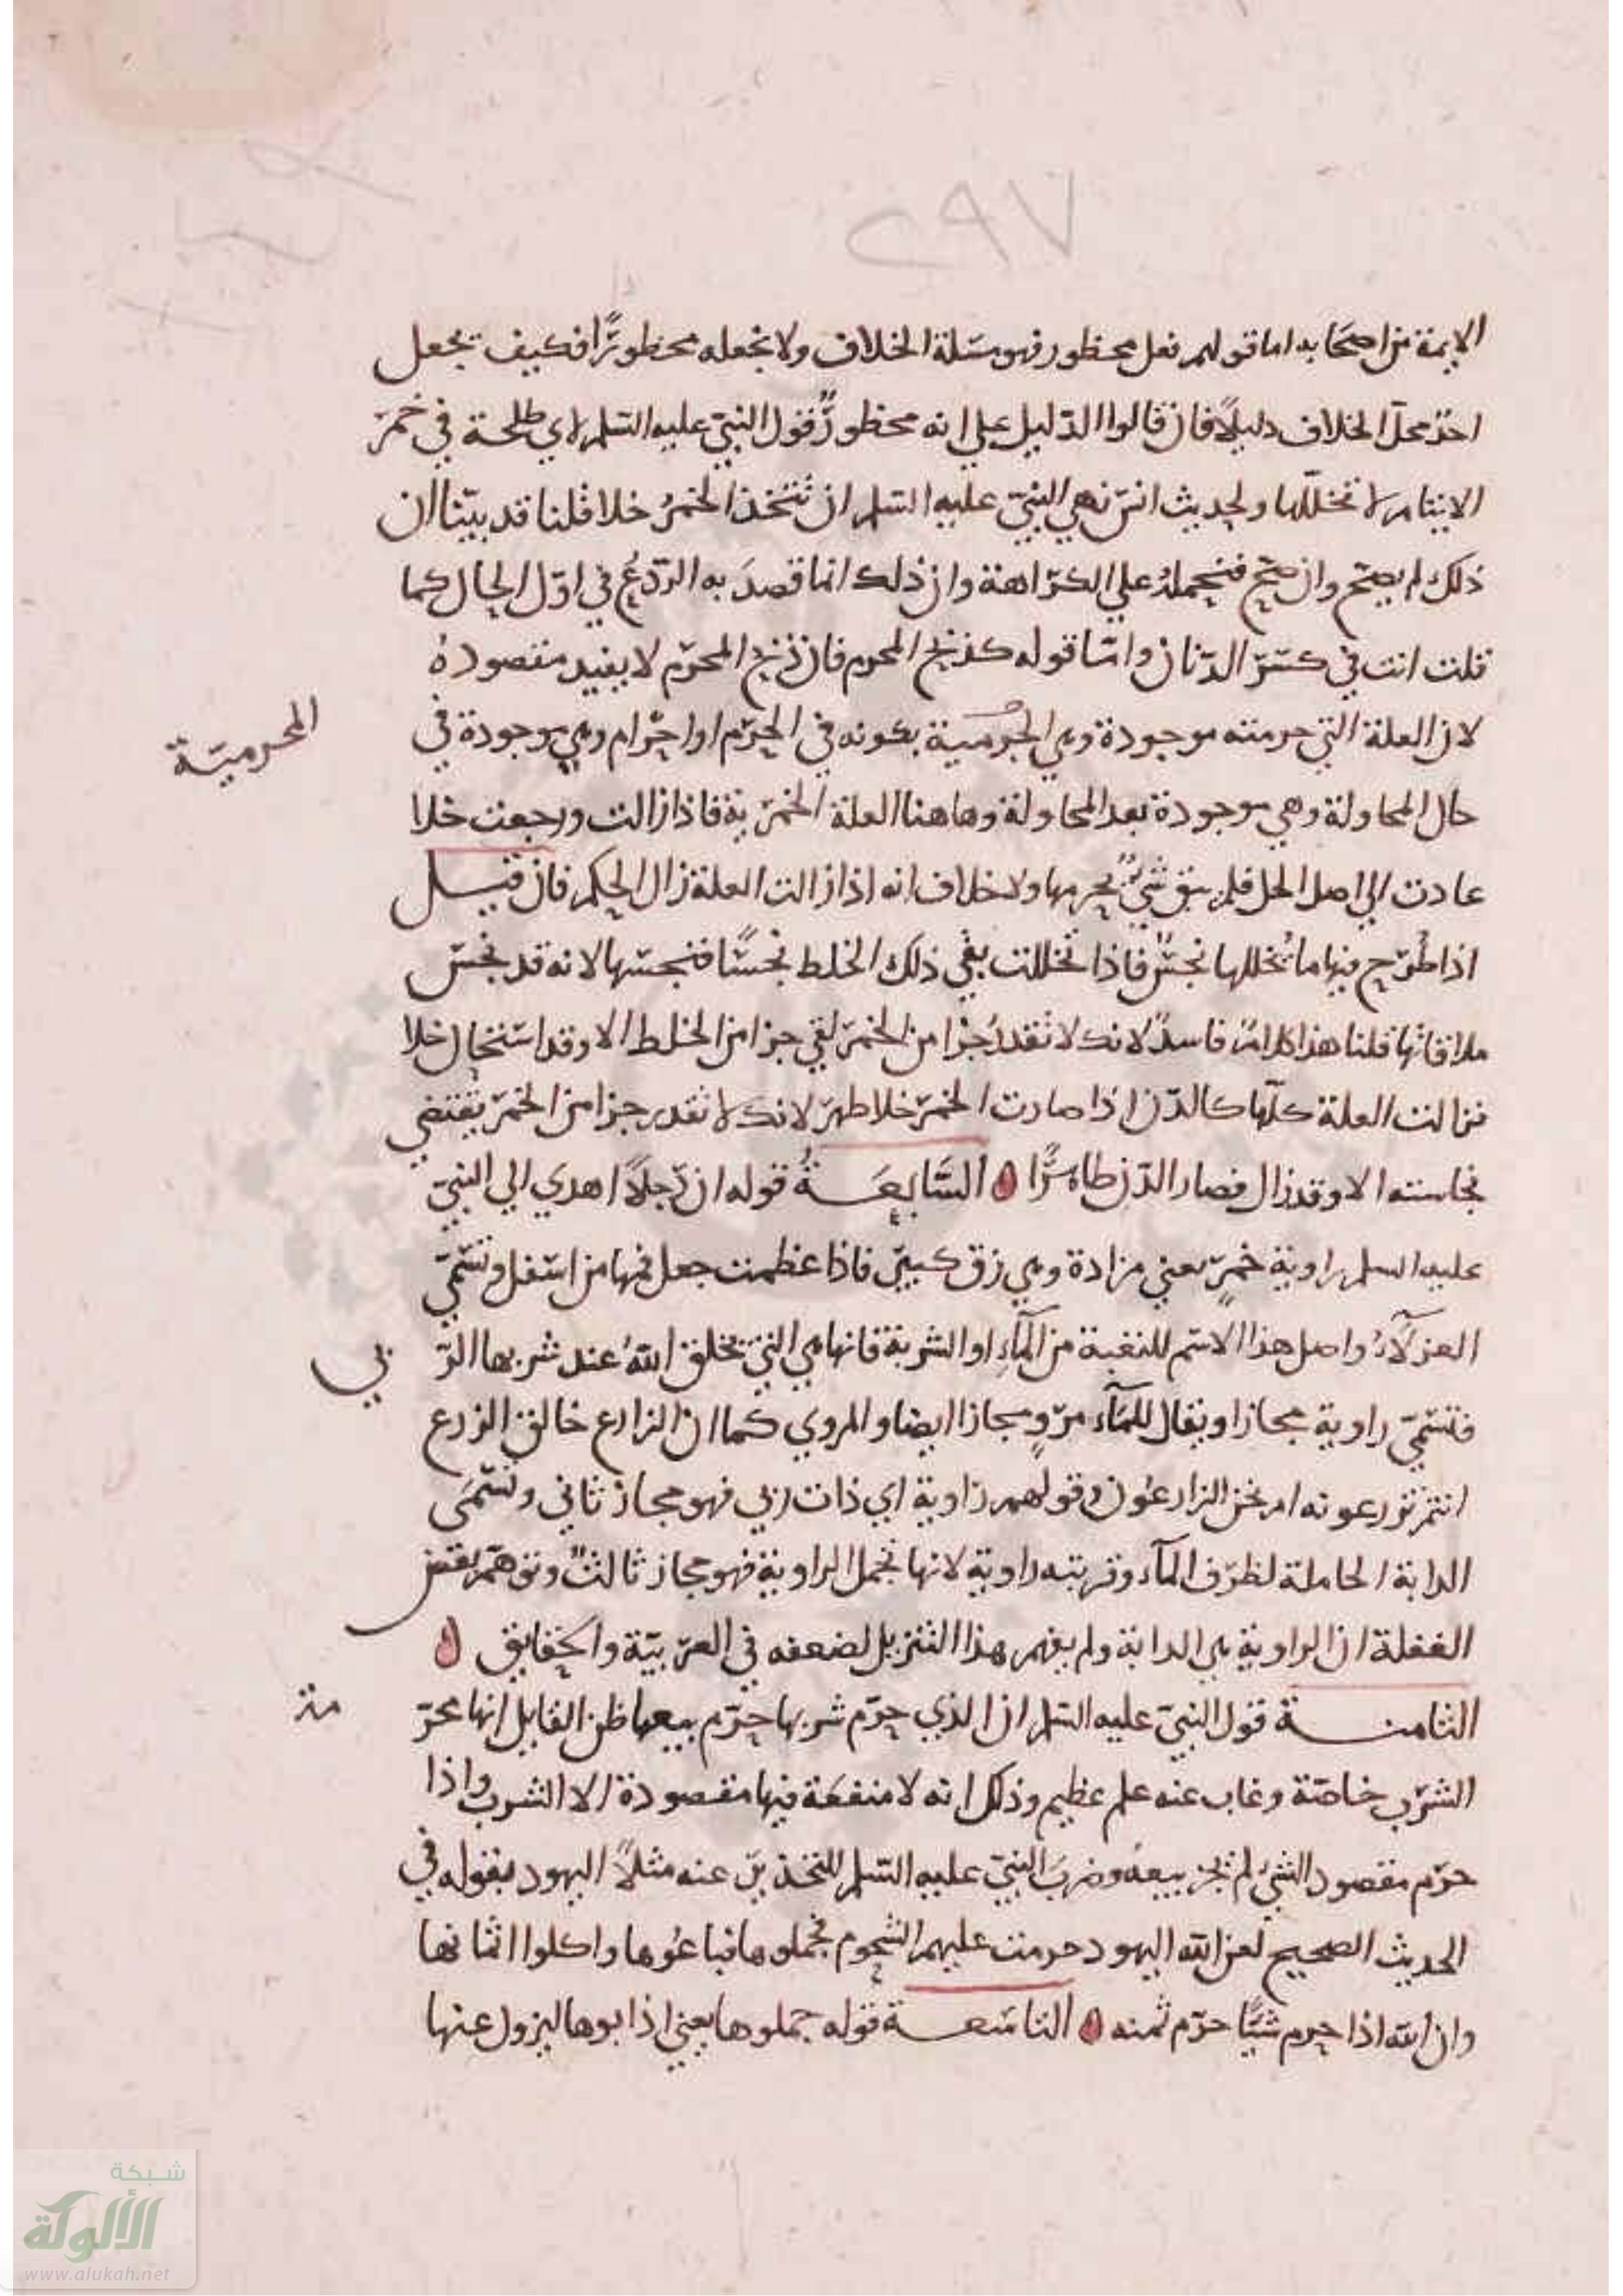 ٢٩٧
الايمة من اصحابه اما قولهم فعل محظور فهو مسئلة الخلاف ولا نجعله محظورًا فكيف تجعل
احد محل الخلاف دليلًا فان قالوا الدليل علي انه محظورٌ قول النبيّ عليه السلم لابي طلحة في خمر
الايتام لا تخللها ولحديث انس نهي النبيّ عليه السلم ان تُتخذ الخمرُ خلا قلنا قد بيّنا ان
ذلك لم يصح وان صح فنحمله علي الكراهة وان ذلك انما قصدَ به الردعُ في اوّل الحال كما
قلت انت في كسر الدنان وامّا قوله كذبح المحرم فان ذبح المحرّم لا يفيد مقصودهُ
لان العلة التي حرمته موجودة وهي الحُرمية بكونه في الحرم او احرام وهي موجودة في
المحرميّة
حال المحاولة وهي موجودة بعد المحاولة وهاهنا العلة الخمرية فاذا زالت ورجعت خلا
عادت الي اصل الحل فلم يبق شيٌ يحرمها ولا خلاف انه اذا زالت العلة زال الحكم فان قيل
اذا طُرح فيها ما يُخللها نجسٌ فاذا تخللت بقي ذلك الخلط نجسًا فنجسها لانه قد نجس
ملاقاتها قلنا هذا كلامٌ فاسدٌ لانك لا تقدرُ جُزا من الخمر لقي جزا من الخلط الا وقد استحال خلا
فزالت العلة كلّها كالدّن اذا صارت الخمر خلا طهر لانك لا تقدر جزا من الخمر يقتضي
نجاسته الا وقد زال فصار الدّن طاهرًا ۞ السَّابعَةُ قوله ان رجلًا اهدي الي النبيّ
عليه السلم راوية خمرٍ يعني مزادة وهي زق كبير فاذا عظمت جعل فمها من اسفل وتسمّي
العزلآءُ واصل هذا الاسم للنغبة من المآءِ او الشربة فانها هي التي يخلق اللهُ عند شربها الرّ
يي
فتسمّي راوية مجازا ويقال للمآء مروٍ مجازا ايضا والمروي كما ان الزارع خالق الزرع
انتم تزرعونه ام نحن الزارعُون وقولهم راوية اي ذات ري فهو مجاز ثاني وتسَّمَى
الدابة الحاملة لظرف المآء وقربته راوية لانها تحمل الراوية فهو مجاز ثالثٌ وتوهّم بعض
الغفلة ان الراوية هي الدابة ولم يفهم هذا التنزيل لضعفه في العربيّة والحقايق ۞
الثامنة قول النبيّ عليه السلم ان الذي حرّم شربها حرّم بيعها ظن القايل انها محرّ
مة
الشرب خاصّة وغاب عنه علم عظيم وذلك انه لا منفعَة فيها مقصودة الا الشرب واذا
حرّم مقصود الشيْ لم يجز بيعهُ وضربَ النبيّ عليه السّلم للتحذير عنه مثلاً اليهود بقوله في
الحديث الصحيح لعن الله اليهود حرمت عليهم الشحوم فجملوها فباعُوها واكلوا اثمانها
وان الله اذا حرم شيًا حرّم ثمنه ۞ التاسَعة قوله جملوها يعني اذابوها ليزول عنها
شبكة
الألوكة
www.alukah.net